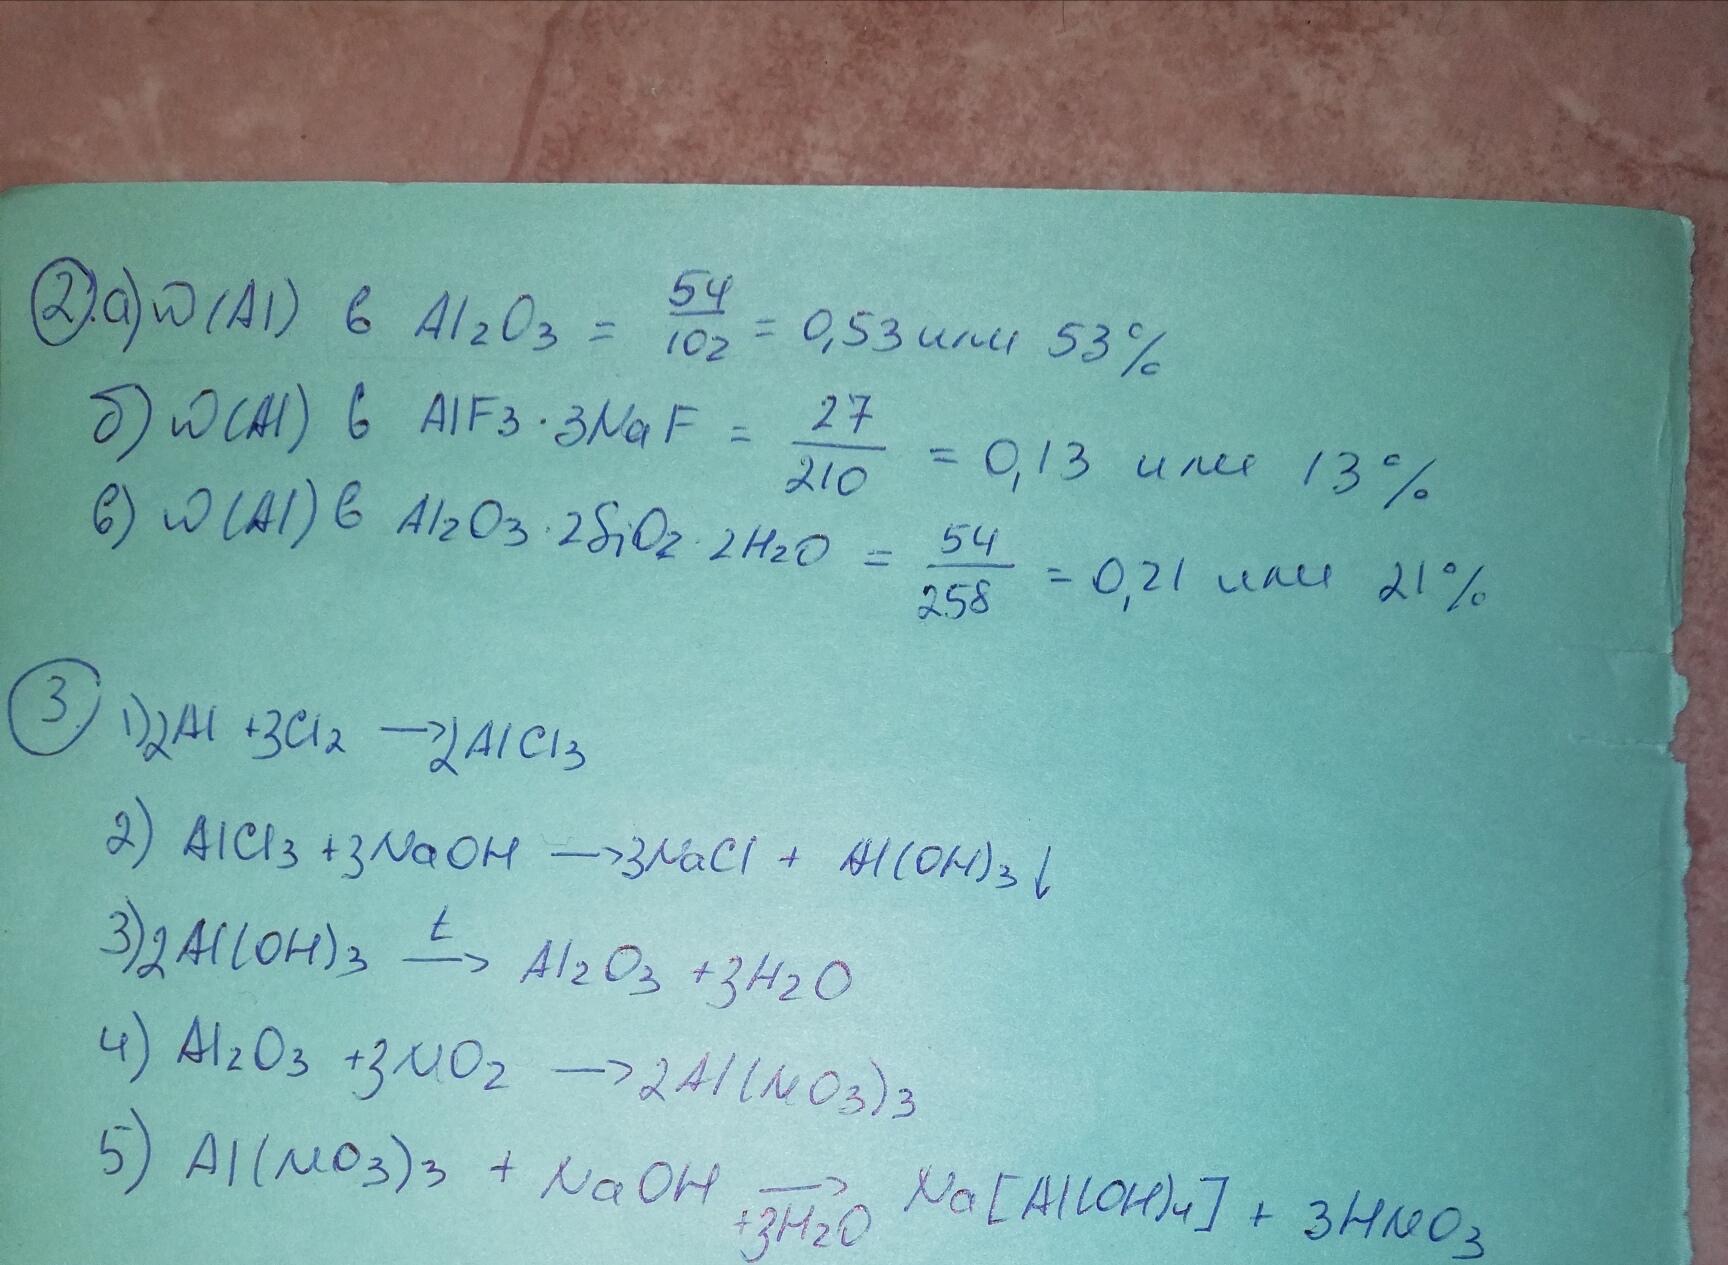 2. а) ω(Al) в Al₂O₃ = 54/102 = 0,53 или 53%
б) ω(Al) в AlF₃·3NaF = 27/210 = 0,13 или 13%
в) ω(Al) в Al₂O₃·2SiO₂·2H₂O = 54/258 = 0,21 или 21%
3. 1) 2Al + 3Cl₂ → 2AlCl₃
2) AlCl₃ + 3NaOH → 3NaCl + Al(OH)₃↓
3) 2Al(OH)₃ t→ Al₂O₃ + 3H₂O
4) Al₂O₃ + 3NO₂ → 2Al(NO₃)₃
5) Al(NO₃)₃ + NaOH →+3H₂O Na[Al(OH)₄] + 3HNO₃